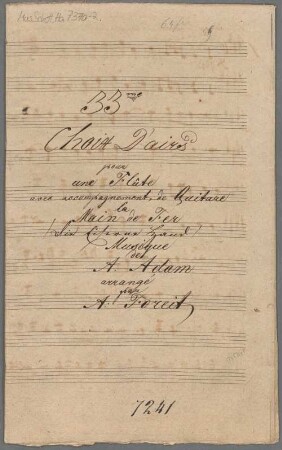 33me
Choix D'airs
pour
une Flûte
avec accompagnement de Guitare
la
Main de Fer
(Die Eiserne Hand)
Musique
de
A. Adam
arrangé
par
A. Foreit
7241